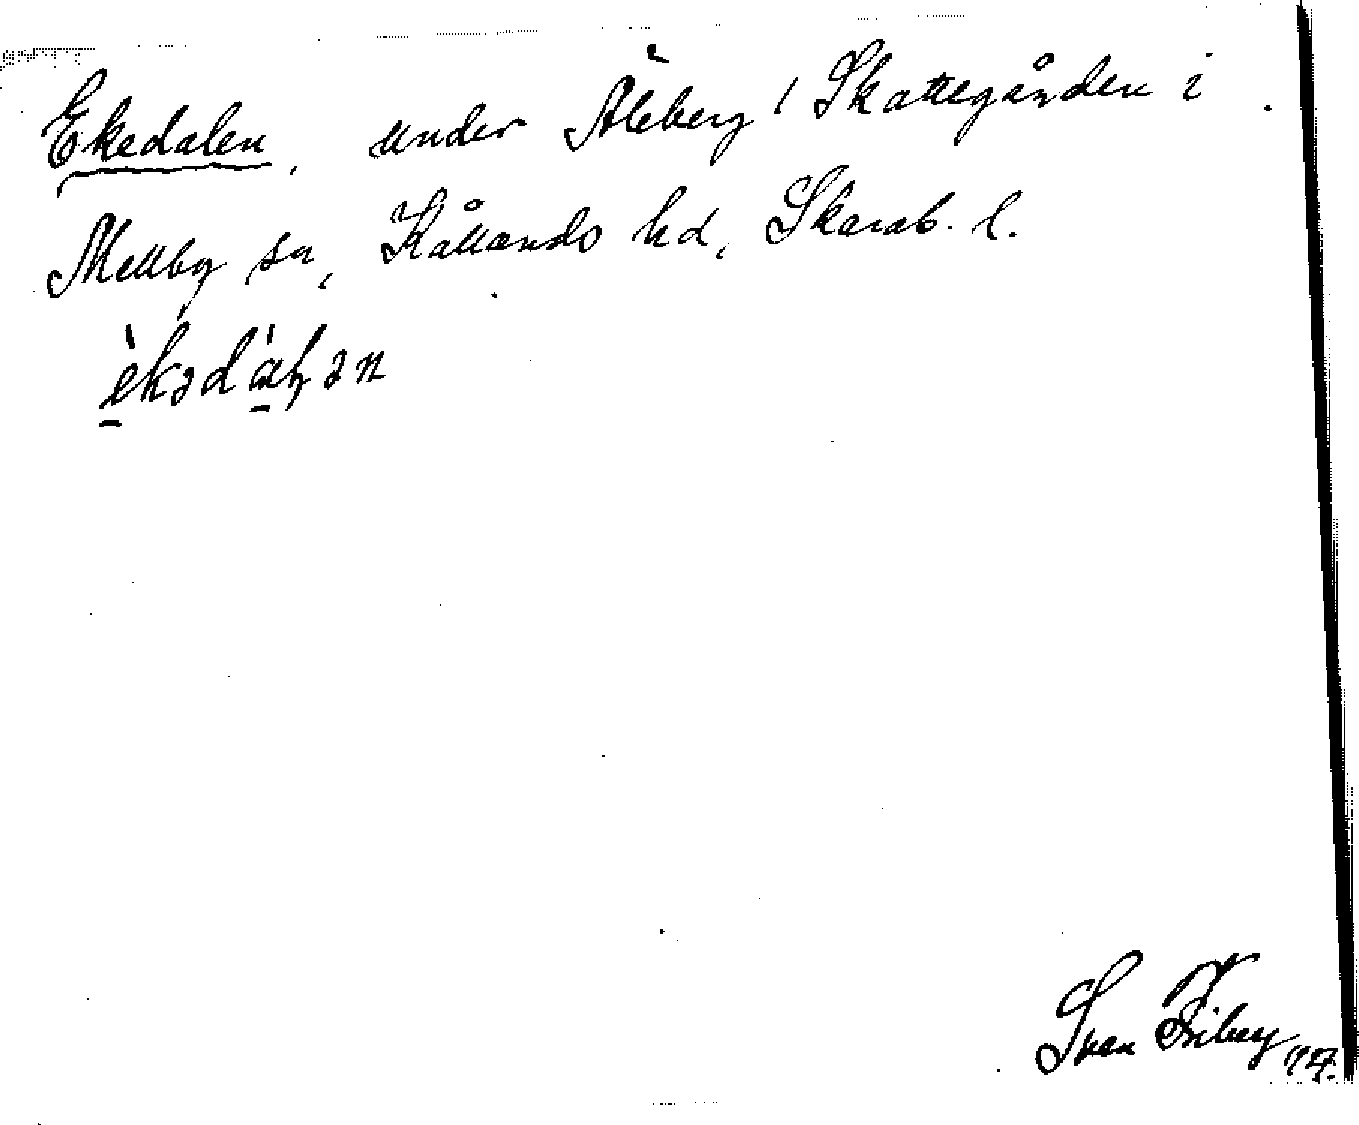 Ekedalen, under Åleberg i Skattegården i
Mellby sn, Kållands hd, Skarab. l.
èkədàɽən
Sven Friberg